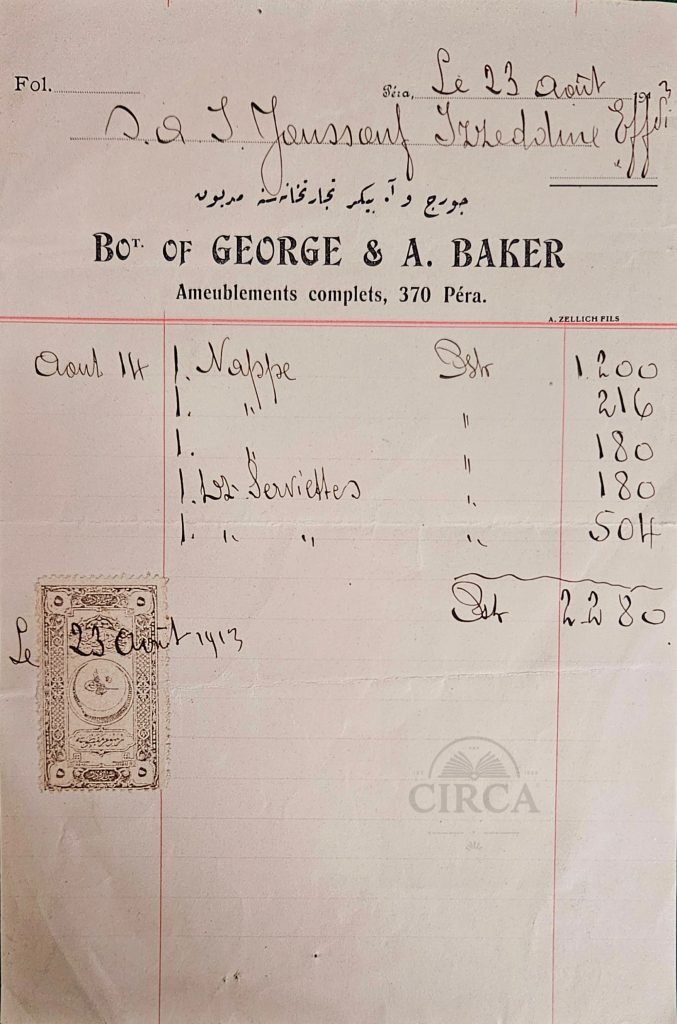 Fol.
Péra, Le 23 Août 3
S. A I. Youssouf Izzeddine Effdi
جورج و آ. بيكر تجارتخانه سنه مديون
BOT. OF GEORGE & A. BAKER
Ameublements complets, 370 Péra.
A. ZELLICH FILS
Aout 14 1. Nappe Pstr 1.200
1. " " 216
1. " " 180
1. Dz Serviettes " 180
1. " " " 504
Pstr 2280
٥ ٥
Le 23 Août 1913
٥ ٥
CIRCA